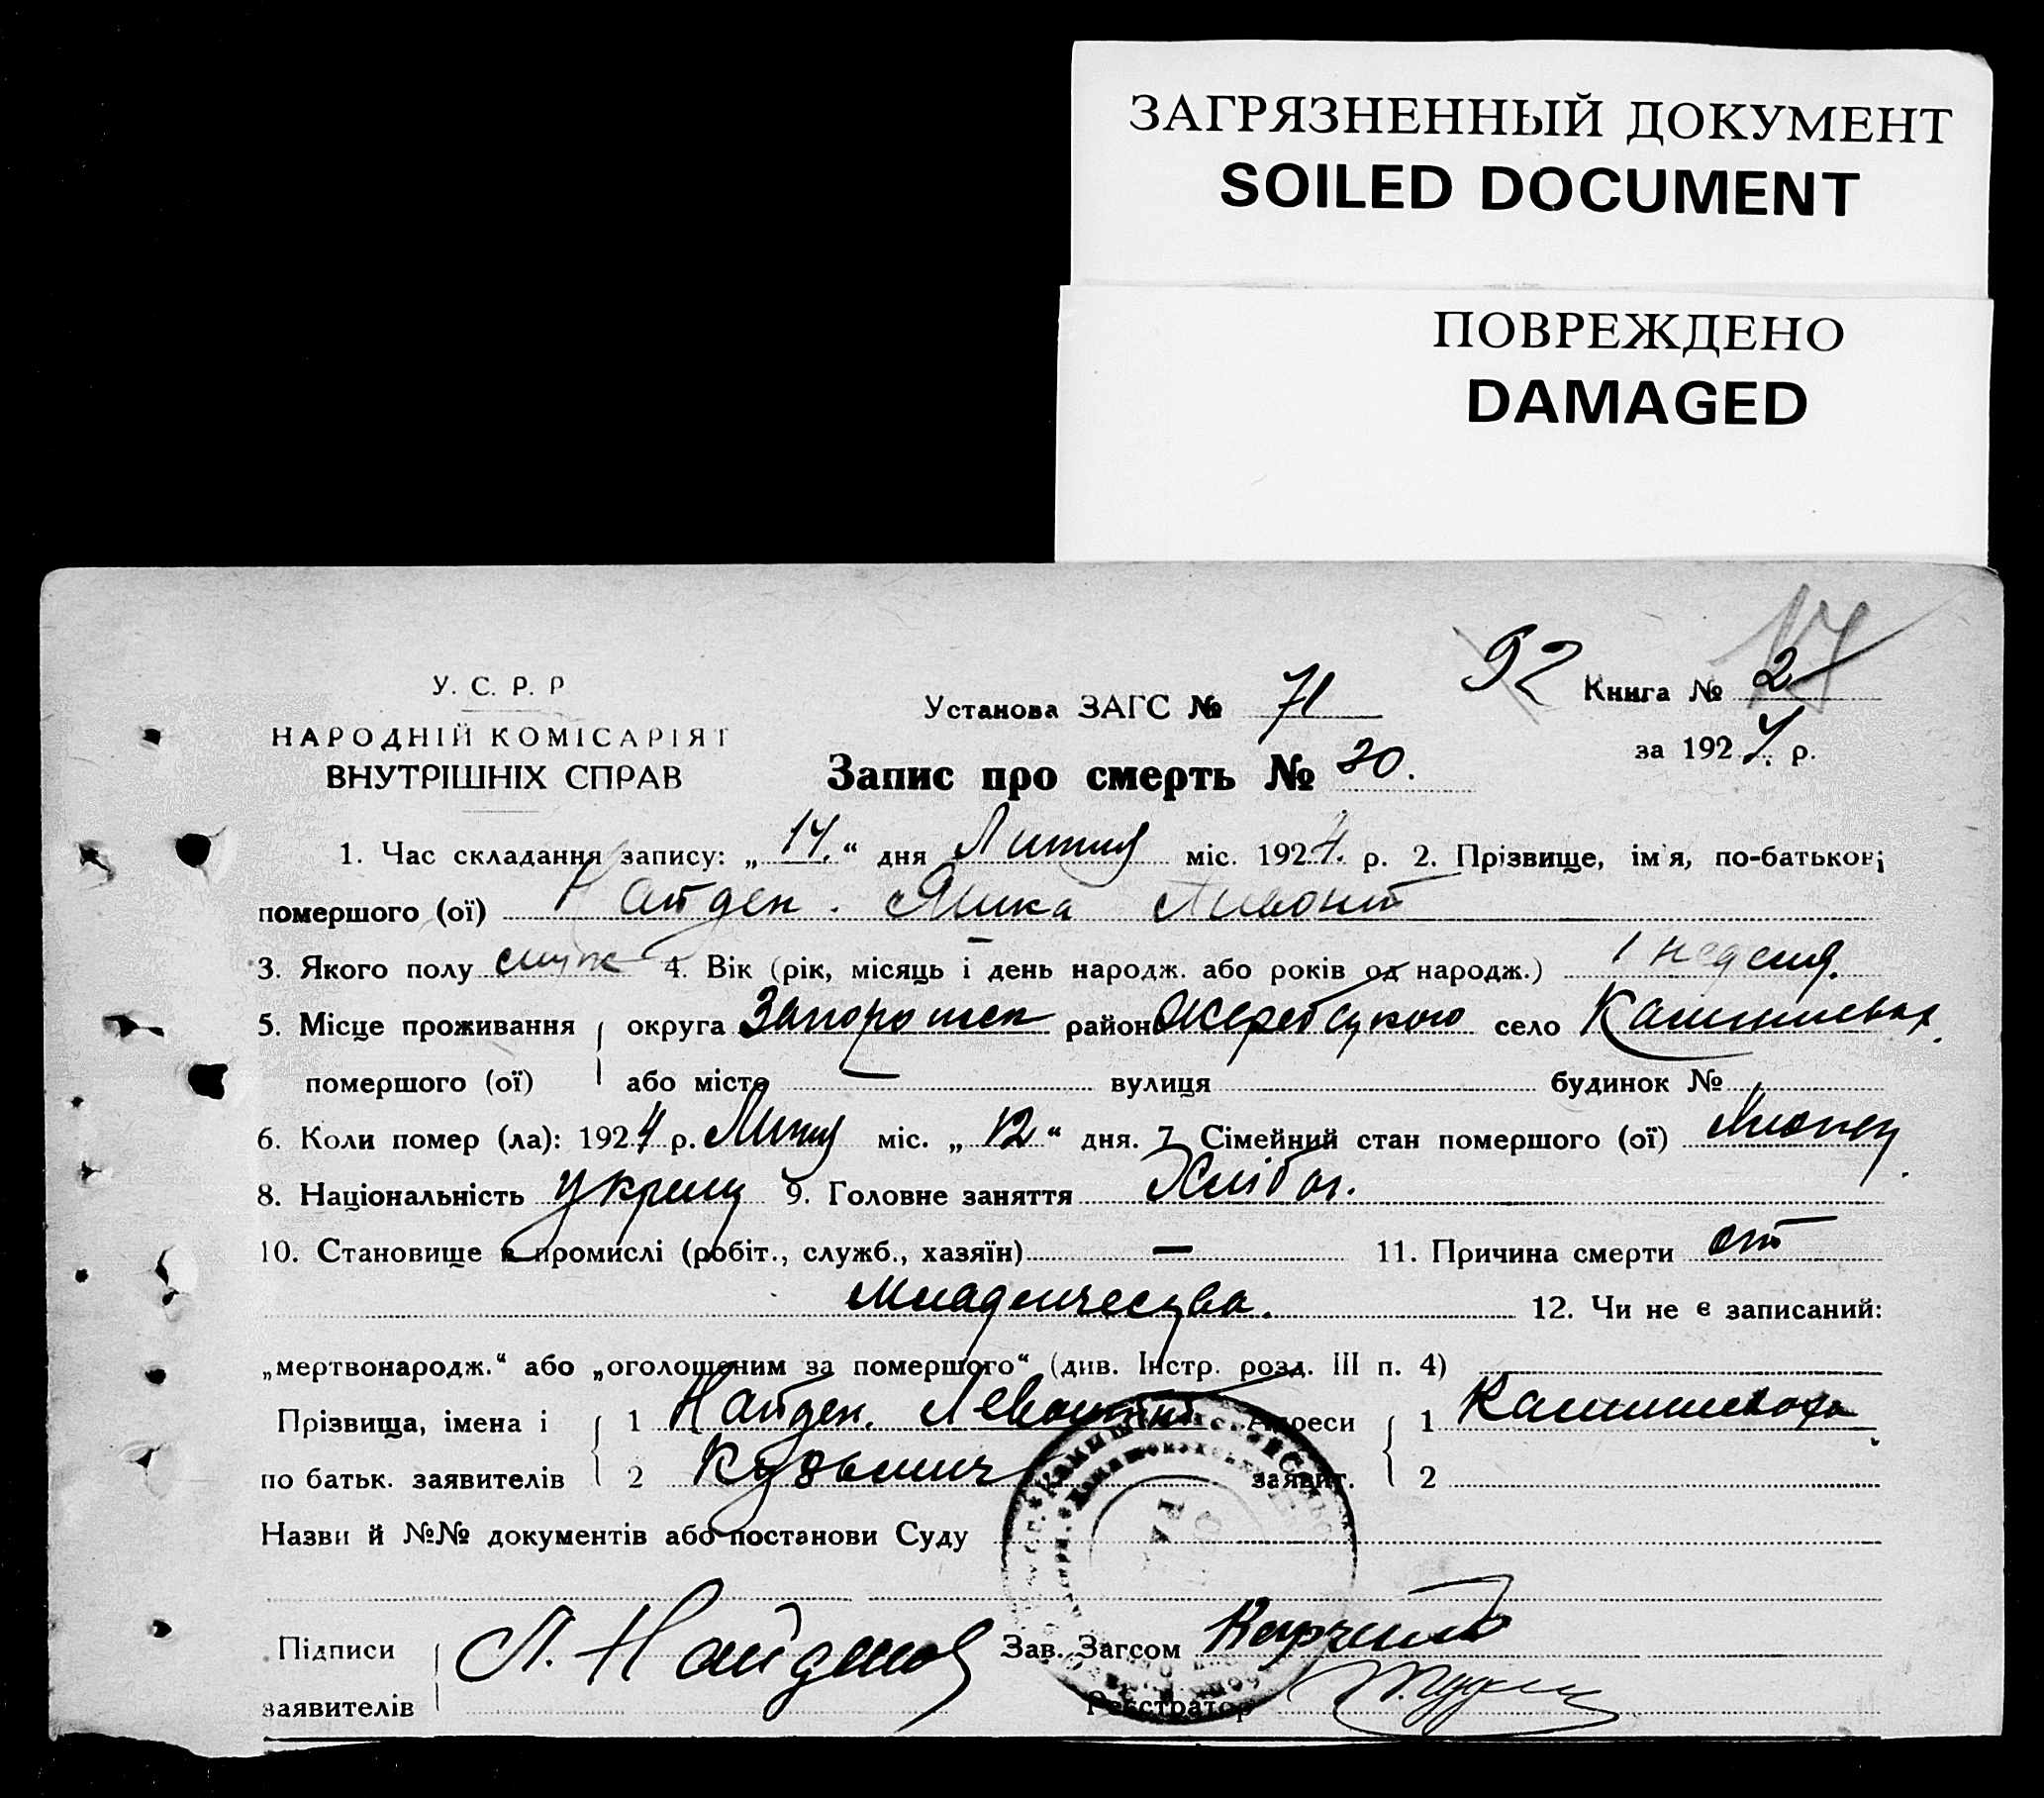 ЗАГРЯЗНЕННЫЙ ДОКУМЕНТ
SOILED DOCUMENT
ПОВРЕЖДЕНО
DAMAGED
17
У. С. Р. Р
НАРОДНІЙ КОМІСАРІЯТ
ВНУТРІШНІХ СПРАВ
Установа ЗАГС № 71
92 Книга № 2
за 1924 р.
Запис про смерть № 20.
1. Час складання запису: „14“ дня міс. 1924. р. 2. Прізвище, ім'я, по-батькові
помершого (ої) Найден.
3. Якого полу 4. Вік (рік, місяць і день народж. або років од народж.) 1 неделя.
5. Місце проживання округа район Жеребецкого село
помершого (ої) або місто — вулиця будинок №
6. Коли помер (ла): 1924 р. міс. „12“ дня. 7. Сімейний стан помершого (ої)
8. Національність украинц 9. Головне заняття Хлібор.
10. Становище в промислі (робіт., служб., хазяїн) — 11. Причина смерти от
Младенчества. 12. Чи не є записаний:
„мертвонародж.“ або „оголошеним за помершого“ (див. Інстр. розд. III п. 4)
Прізвища, імена і 1 Найден. Адреси 1
по батьк. заявителів 2 Кузьмич заявит. 2
Назви й №№ документів або постанови Суду
Підписи Л. Найденов Зав. Загсом
заявителів Реєстратор